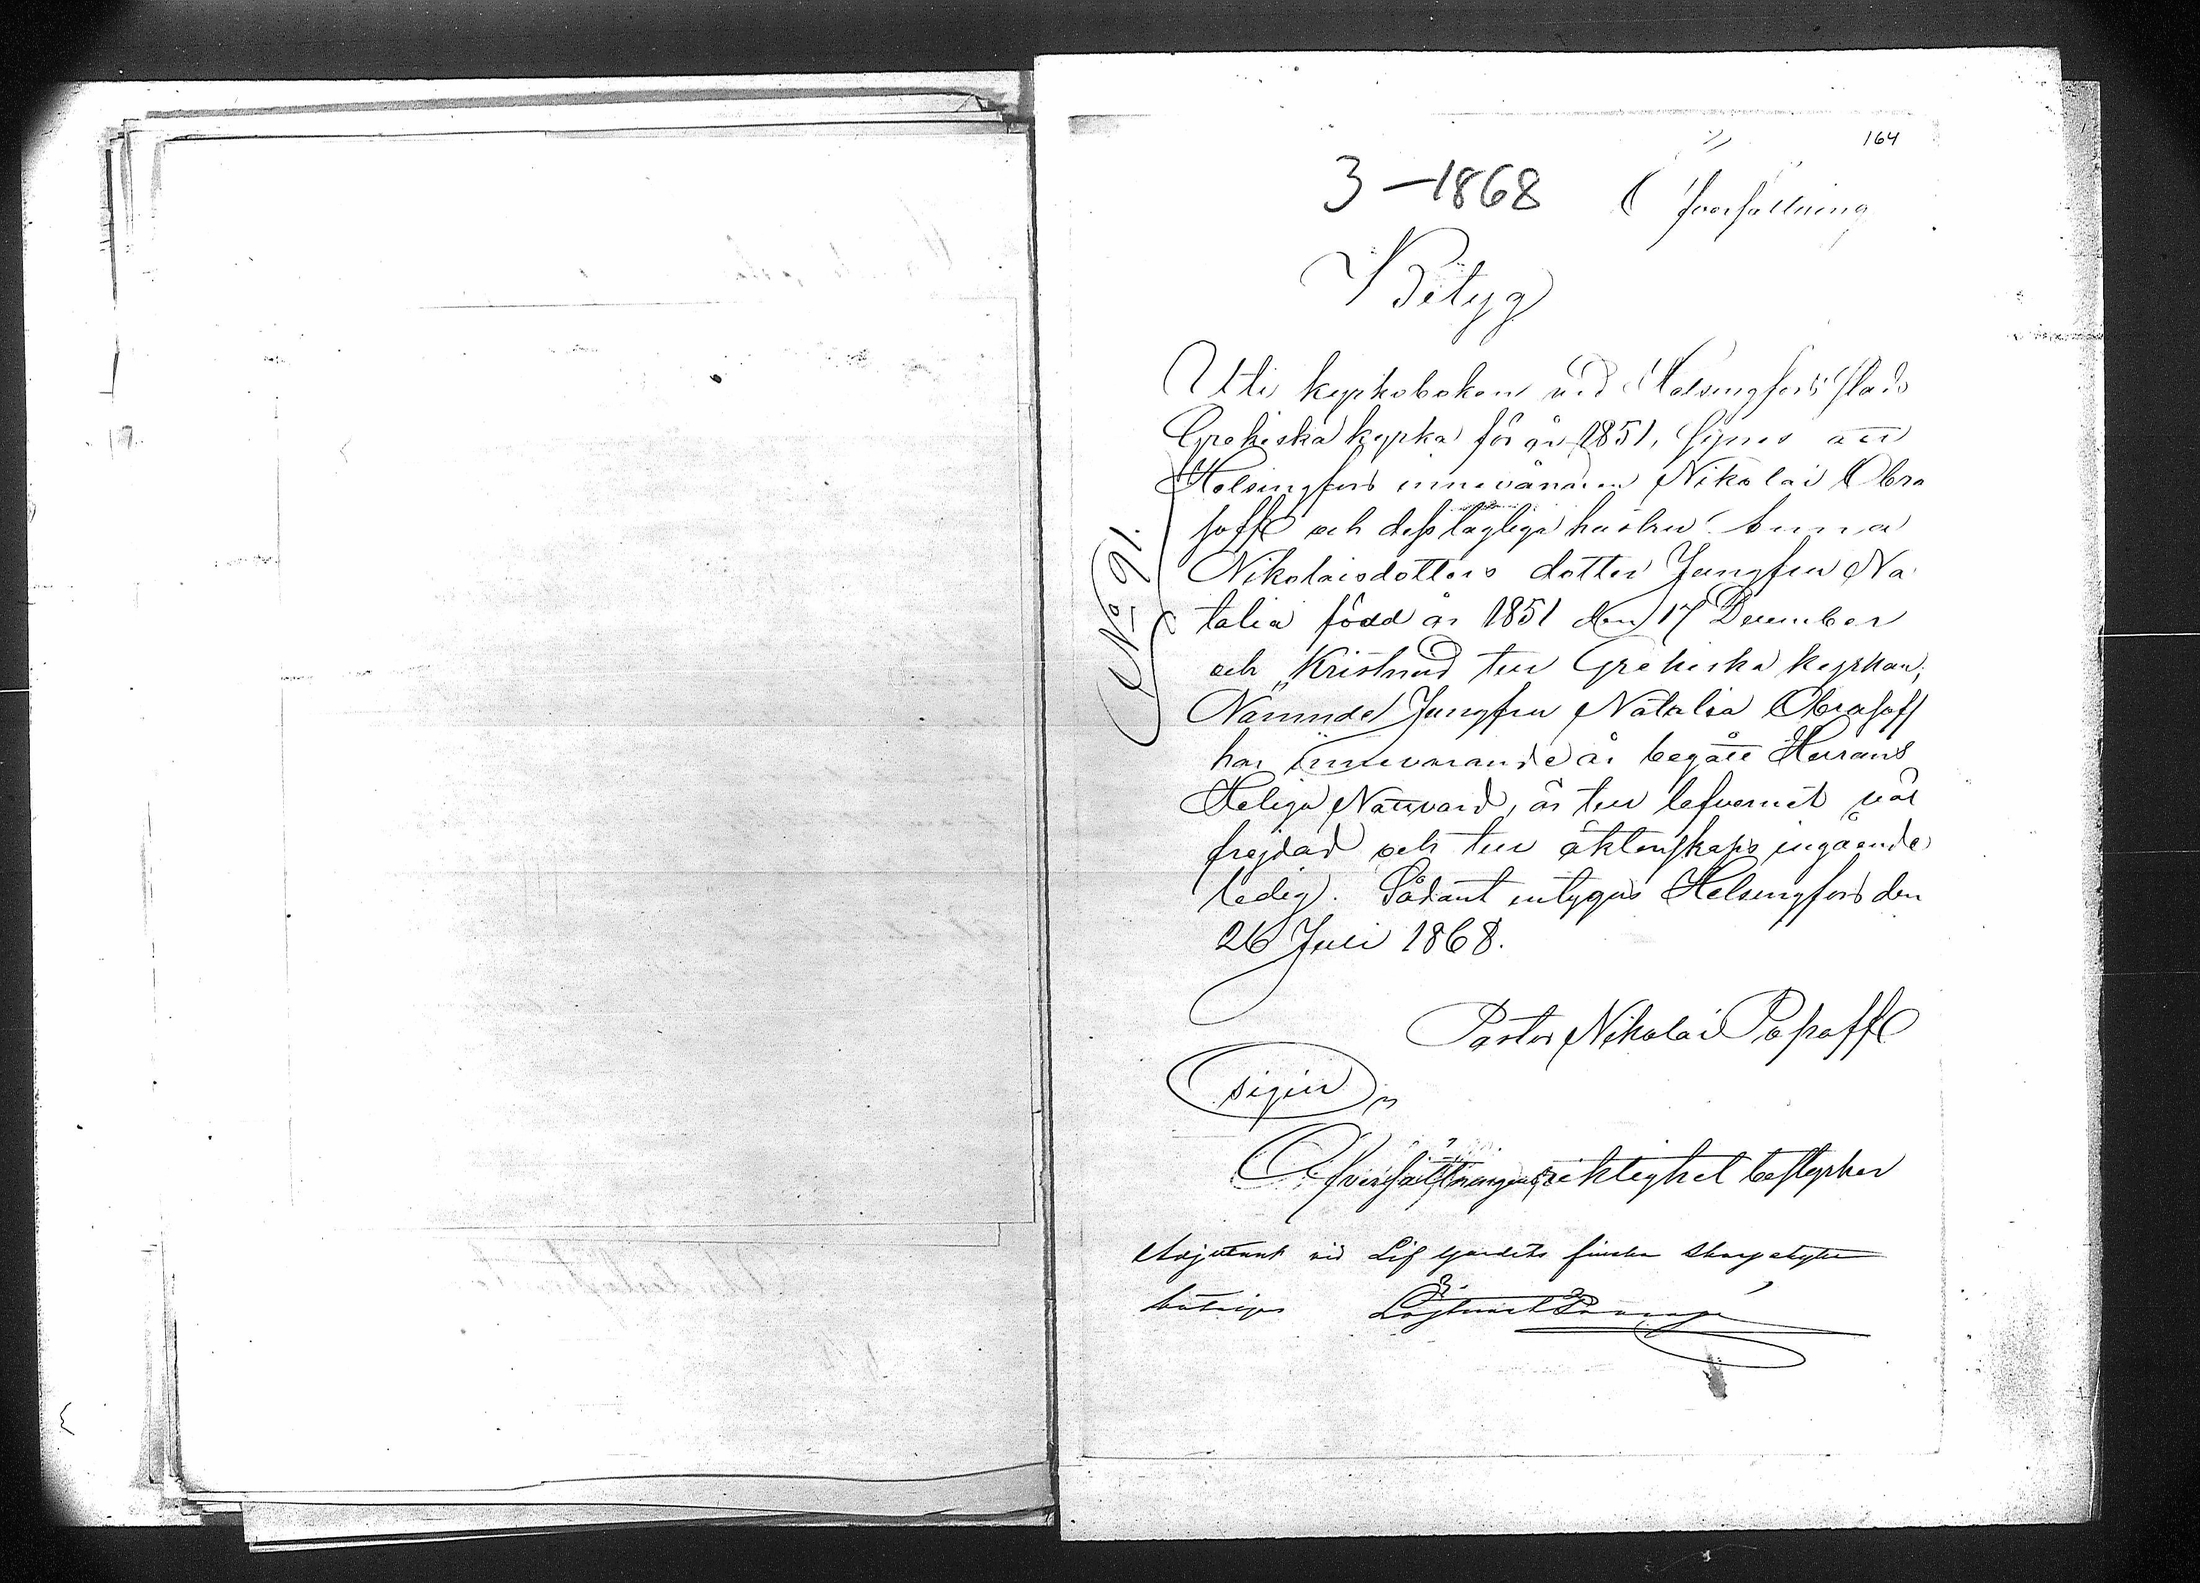 164
3-1868 Öfversättning
Betyg
Uti kyrkoboken vid Helsingfors stads
Grekiska kyrka för år 1851, synes att
Helsingfors innevånaren Nikolai Obra
soff och dess lagliga hustru Anna
Nikolaisdotters dotter Jungfru Na
talia född år 1851 den 17 December
och "Kristnad till Grekiska kyrkan;
Nämnde Jungfru Natalia Obrasoff
har innevarande år begått Herrans
Heliga Nattvard, är till lefvernet väl
frejdad och till äktenskaps ingående
ledig. Sådant intygas Helsingfors den
26 Juli 1868.
No 91.
Pastor Nikolai Popoff
sigill
Öfversättningens riktighet bestyrker
Adjutant vid Lif Gardets finska Skarpskytte
bataljon